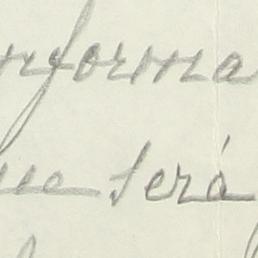 nforma
ue será